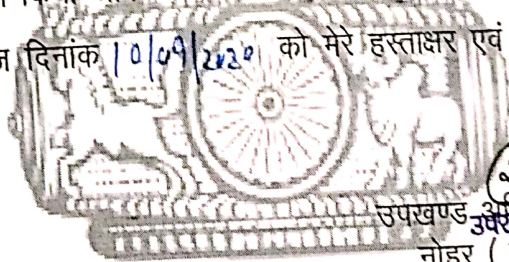 दिनांक 10/09/2020 को मेरे हस्ताक्षर एवं
उपखण्ड
नोहर (